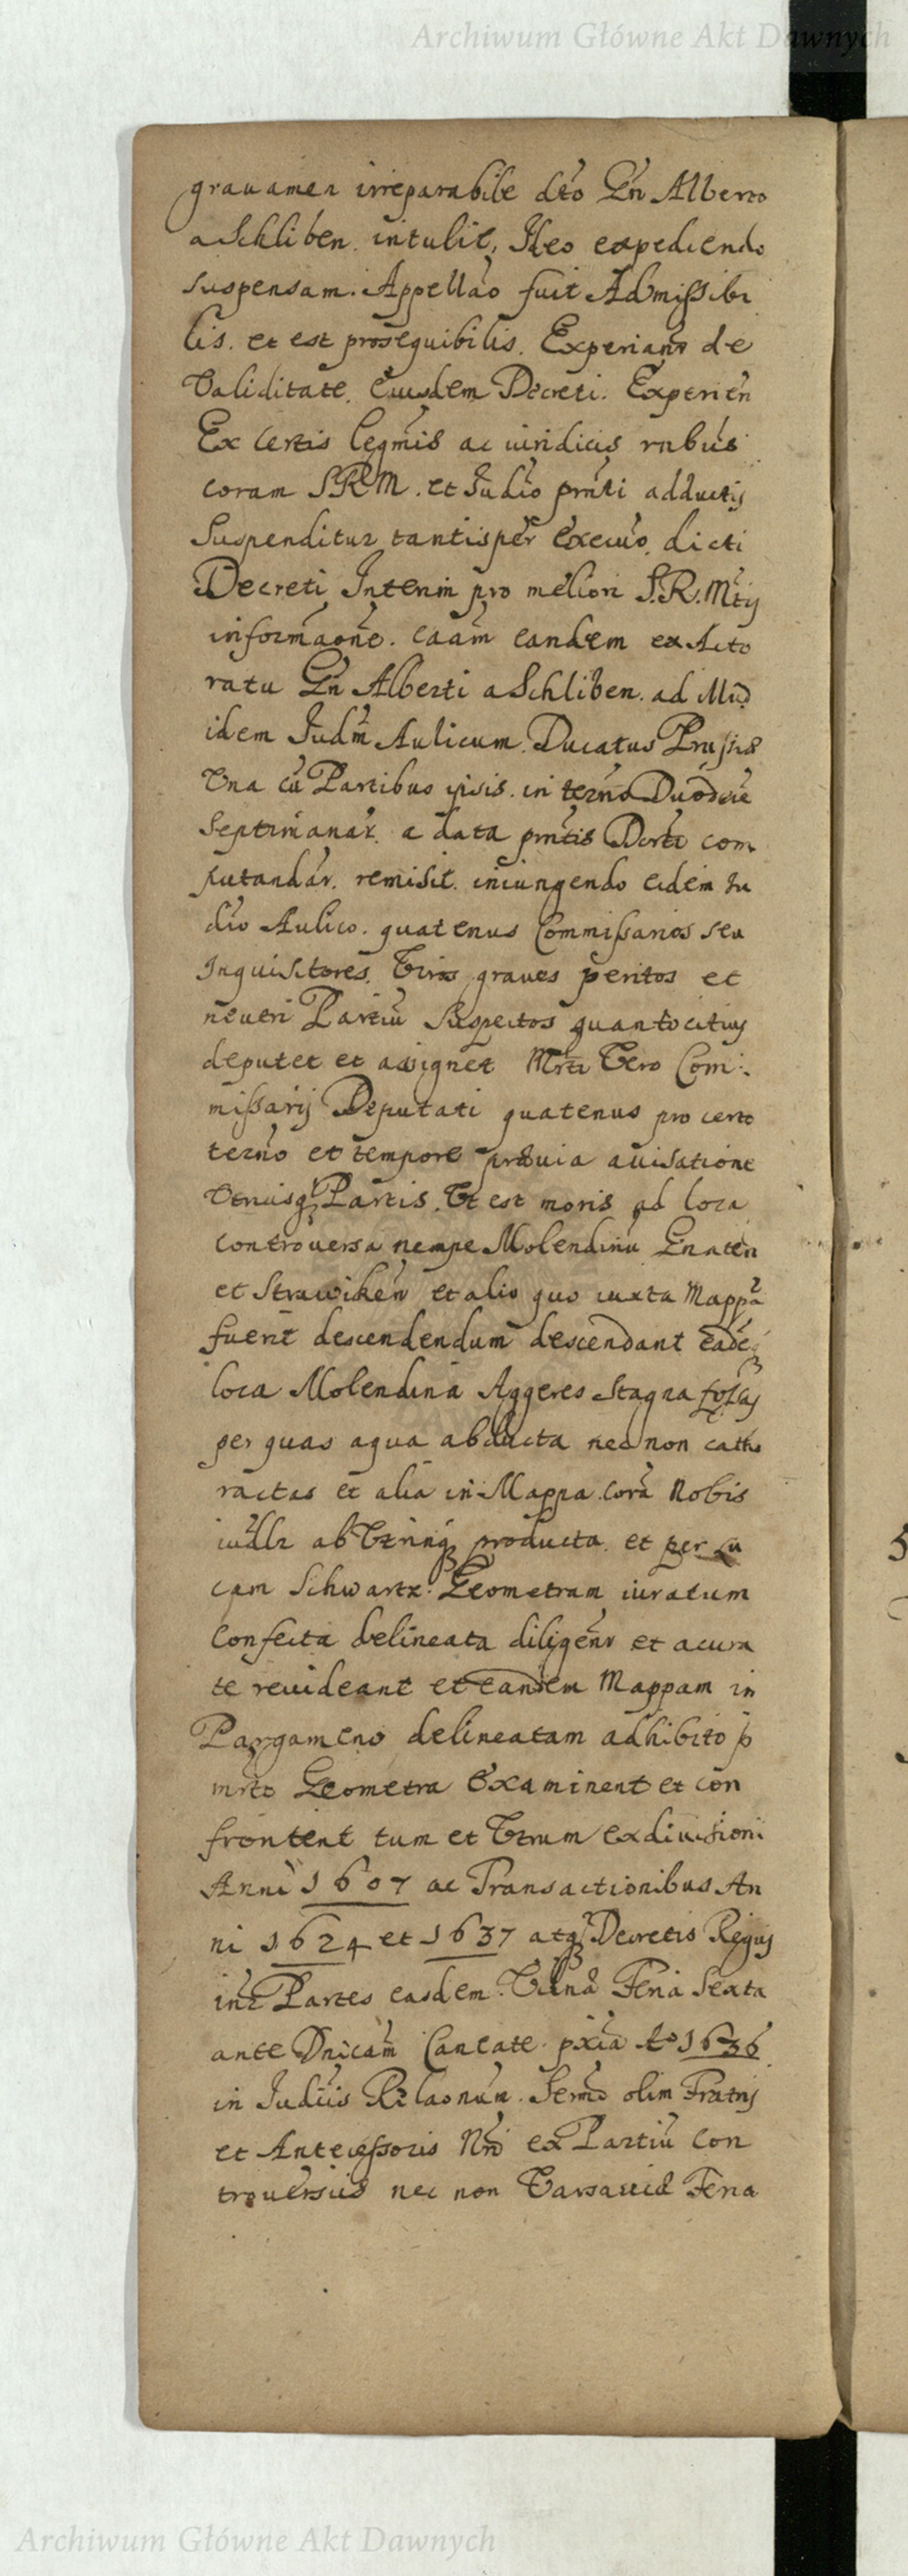 Archiwum Główne Akt Dawnych
grauamen irreparabile dto Gn Alberto
a Schliben intulit, Ideo expediendo
suspensam. Appellao fuit Admissibi
lis. et est prosequibilis. Experianr de
Validitate. Eiusdem Decreti. Experien
Ex certis legmis ac iuridicis rnbus
coram SRM. et Judio pnti adductis
Suspenditur tantisper execuo, dicti
Decreti Interim pro meliori S.R.Mtis
informaone. caam eandem ex Acto
ratu Gn Alberti a Schliben. ad Illud
idem Judm Aulicum. Ducatus Prussiæ
Vna cu Partibus ipsis. in termo
Septimanar. a data pntis Dcrti com
putandar. remisit. iniungendo eidem Iu
dio Aulico. quatenus Commissarios seu
Inquisitores. Viros graues peritos et
neutri Partiu Suspectos quantocitius
deputet et assignet Vero Com:
missarij Deputati quatenus pro certo
termo et tempore præuia auisatione
Vtriusq Partis. Vt est moris ad loca
controuersa nempe Molendinu Gnaten
et Strawiken et alio quo iuxta Mappa
fuerit descendendum descendant eade
loca Molendina Aggeres Stagna fossas
per quas aqua abducta nec non catha
ractas et alia in Mappa cora Nobis
iudlr ab Vtrinq producta. et per Lu
cam Schwartz. Geometram iuratum
Confecta delineata diligenr et acura
te reuideant et eandem Mappam in
Pargameno delineatam adhibito p
Geometra Examinent et con
frontent tum et Vtrum ex diuisioni
Anni 1607 ac Transactionibus An
ni 1624 et 1637 atq Decretis Regijs
inr Partes easdem. Vilnæ Feria Sexta
ante Dnicam Cantate pxia Ao 1636
in Judiis Relaonum. Sermi olim Fratris
et Antecessoris Nri ex Partiu Con
trouersiis nec non Varsauiæ Feria
Archiwum Główne Akt Dawnych